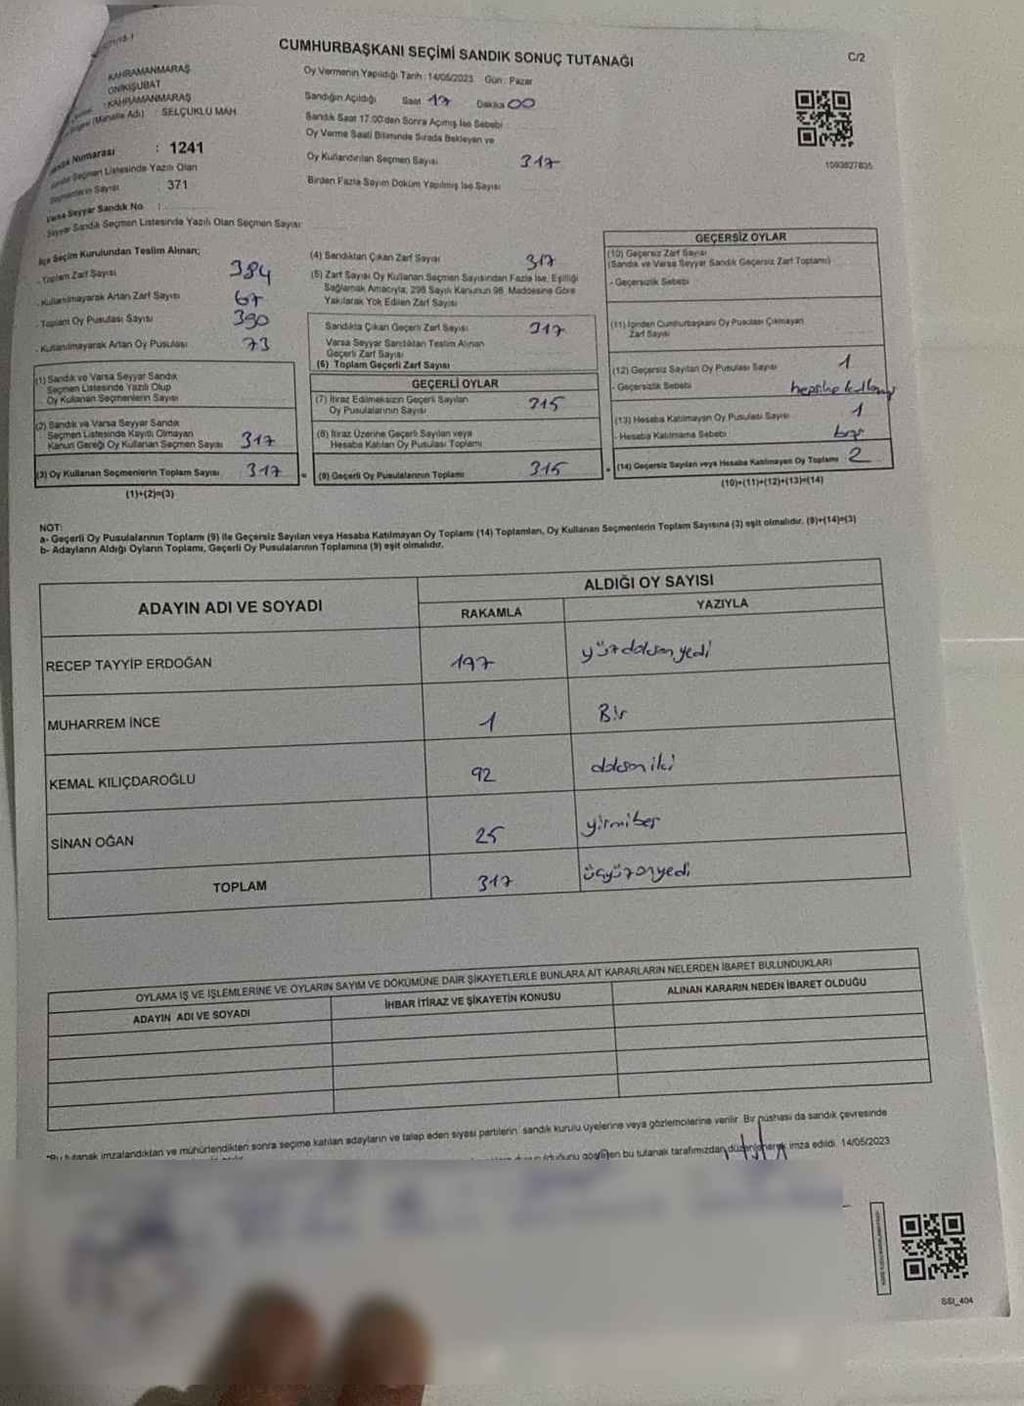 CUMHURBAŞKANI SEÇİMİ SANDIK SONUÇ TUTANAĞI
C/2
KAHRAMANMARAŞ
ONİKİŞUBAT
: KAHRAMANMARAŞ
(Mahalle Adı) : SELÇUKLU MAH.
Numarası : 1241
Seçmen Listesinde Yazılı Olan
Seçmenlerin Sayısı : 371
Varsa Seyyar Sandık No :
Seyyar Sandık Seçmen Listesinde Yazılı Olan Seçmen Sayısı:
Oy Vermenin Yapıldığı Tarih : 14/05/2023 Gün : Pazar
Sandığın Açıldığı Saat 17 Dakika 00
Sandık Saat 17.00'den Sonra Açımış İse Sebebi
Oy Verme Saati Bitiminde Sırada Bekleyen ve
Oy Kullandırılan Seçmen Sayısı 317
Birden Fazla Sayım Döküm Yapılmış İse Sayısı
1093827835
İlçe Seçim Kurulundan Teslim Alınan;
- Toplam Zarf Sayısı 384
- Kullanılmayarak Artan Zarf Sayısı 67
- Toplam Oy Pusulası Sayısı 390
- Kullanılmayarak Artan Oy Pusulası 73
(1) Sandık ve Varsa Seyyar Sandık
Seçmen Listesinde Yazılı Olup
Oy Kullanan Seçmenlerin Sayısı
(2) Sandık ve Varsa Seyyar Sandık
Seçmen Listesinde Kayıtlı Olmayan
Kanun Gereği Oy Kullanan Seçmen Sayısı 317
(3) Oy Kullanan Seçmenlerin Toplam Sayısı 317
(1)+(2)=(3)
(4) Sandıktan Çıkan Zarf Sayısı 317
(5) Zarf Sayısı Oy Kullanan Seçmen Sayısından Fazla İse, Eşitliği
Sağlamak Amacıyla; 298 Sayılı Kanunun 98. Maddesine Göre
Yakılarak Yok Edilen Zarf Sayısı
Sandıkta Çıkan Geçerli Zarf Sayısı 317
Varsa Seyyar Sandıktan Teslim Alınan
Geçerli Zarf Sayısı
(6) Toplam Geçerli Zarf Sayısı
GEÇERLİ OYLAR
(7) İtiraz Edilmeksizin Geçerli Sayılan
Oy Pusulalarının Sayısı 315
(8) İtiraz Üzerine Geçerli Sayılan veya
Hesaba Katılan Oy Pusulası Toplamı
= (9) Geçerli Oy Pusulalarının Toplamı 315
GEÇERSİZ OYLAR
(10) Geçersiz Zarf Sayısı
(Sandık ve Varsa Seyyar Sandık Geçersiz Zarf Toplamı)
- Geçersizlik Sebebi
(11) İçinden Cumhurbaşkanı Oy Pusulası Çıkmayan
Zarf Sayısı
(12) Geçersiz Sayılan Oy Pusulası Sayısı 1
- Geçersizlik Sebebi
(13) Hesaba Katılmayan Oy Pusulası Sayısı 1
- Hesaba Katılmama Sebebi
+ (14) Geçersiz Sayılan veya Hesaba Katılmayan Oy Toplamı 2
(10)+(11)+(12)+(13)=(14)
NOT:
a- Geçerli Oy Pusulalarının Toplamı (9) ile Geçersiz Sayılan veya Hesaba Katılmayan Oy Toplamı (14) Toplamları, Oy Kullanan Seçmenlerin Toplam Sayısına (3) eşit olmalıdır. (9)+(14)=(3)
b- Adayların Aldığı Oyların Toplamı, Geçerli Oy Pusulalarının Toplamına (9) eşit olmalıdır.
ADAYIN ADI VE SOYADI
ALDIĞI OY SAYISI
RAKAMLA YAZIYLA
RECEP TAYYİP ERDOĞAN 197 yüzdoksanyedi
MUHARREM İNCE 1 Bir
KEMAL KILIÇDAROĞLU 92 doksaniki
SİNAN OĞAN 25 yirmibeş
TOPLAM 317 üçyüzonyedi
OYLAMA İŞ VE İŞLEMLERİNE VE OYLARIN SAYIM VE DÖKÜMÜNE DAİR ŞİKAYETLERLE BUNLARA AİT KARARLARIN NELERDEN İBARET BULUNDUKLARI
ADAYIN ADI VE SOYADI İHBAR İTİRAZ VE ŞİKAYETİN KONUSU ALINAN KARARIN NEDEN İBARET OLDUĞU
*Bu tutanak imzalandıktan ve mühürlendikten sonra seçime katılan adayların ve talep eden siyasi partilerin sandık kurulu üyelerine veya gözlemcilerine verilir. Bir nüshası da sandık çevresinde
gösteren bu tutanak tarafımızdan düzenlenerek imza edildi. 14/05/2023
SSİ_404